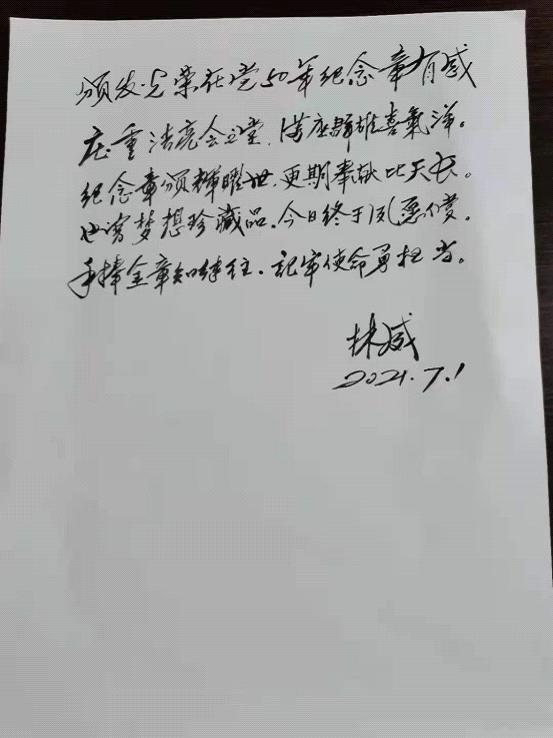 颁发光荣在党50年纪念章有感
庄重洁亮会立堂,满座群雄喜氣洋。
纪念章颁輝曜世,更期奉献比天长。
梦想珍藏品,今日终于夙愿偿,
手捧金章知继往,记牢使命勇担当。
林威
2021.7.1